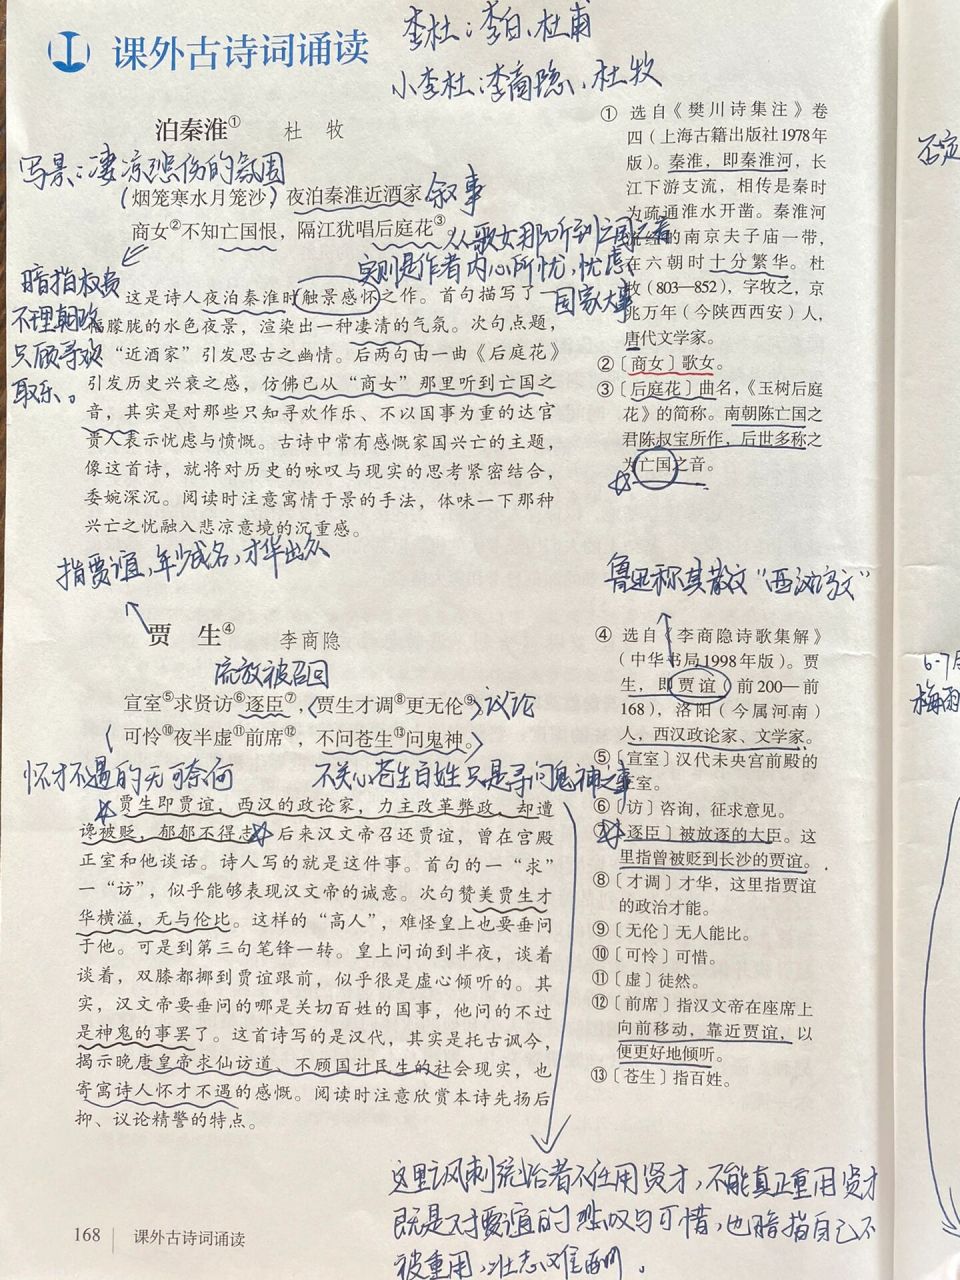 课外古诗词诵读
李杜：李白、杜甫
小李杜：李商隐、杜牧
泊秦淮① 杜 牧
写景：凄凉悲伤的氛围
（烟笼寒水月笼沙）夜泊秦淮近酒家 叙事
商女②不知亡国恨，隔江犹唱后庭花③
从歌女那听到亡国之音
实则是作者内心所忧，忧虑
国家大事
暗指权贵
不理朝政
只顾寻欢
取乐。
这是诗人夜泊秦淮时触景感怀之作。首句描写了
朦胧的水色夜景，渲染出一种凄清的气氛。次句点题，
“近酒家”引发思古之幽情。后两句由一曲《后庭花》
引发历史兴衰之感，仿佛已从“商女”那里听到亡国之
音，其实是对那些只知寻欢作乐、不以国事为重的达官
贵人表示忧虑与愤慨。古诗中常有感慨家国兴亡的主题，
像这首诗，就将对历史的咏叹与现实的思考紧密结合，
委婉深沉。阅读时注意寓情于景的手法，体味一下那种
兴亡之忧融入悲凉意境的沉重感。
指贾谊，年少成名，才华出众
贾 生④ 李商隐
流放被召回
宣室⑤求贤访⑥逐臣⑦，（贾生才调⑧更无伦⑨）议论
（可怜⑩夜半虚⑪前席⑫，不问苍生⑬问鬼神。）
怀才不遇的无可奈何 不关心苍生百姓只是寻问鬼神之事
贾生即贾谊，西汉的政论家，力主改革弊政，却遭
谗被贬，郁郁不得志。后来汉文帝召还贾谊，曾在宫殿
正室和他谈话。诗人写的就是这件事。首句的一“求”
一“访”，似乎能够表现汉文帝的诚意。次句赞美贾生才
华横溢，无与伦比。这样的“高人”，难怪皇上也要垂问
于他。可是到第三句笔锋一转。皇上问询到半夜，谈着
谈着，双膝都挪到贾谊跟前，似乎很是虚心倾听的。其
实，汉文帝要垂问的哪是关切百姓的国事，他问的不过
是神鬼的事罢了。这首诗写的是汉代，其实是托古讽今，
揭示晚唐皇帝求仙访道、不顾国计民生的社会现实，也
寄寓诗人怀才不遇的感慨。阅读时注意欣赏本诗先扬后
抑、议论精警的特点。
① 选自《樊川诗集注》卷
四（上海古籍出版社1978年
版）。秦淮，即秦淮河，长
江下游支流，相传是秦时
为疏通淮水开凿。秦淮河
流经的南京夫子庙一带，
在六朝时十分繁华。杜
牧（803—852），字牧之，京
兆万年（今陕西西安）人，
唐代文学家。
②〔商女〕歌女。
③〔后庭花〕曲名，《玉树后庭
花》的简称。南朝陈亡国之
君陈叔宝所作，后世多称之
为亡国之音。
鲁迅称其散文“西汉鸿文”
④ 选自《李商隐诗歌集解》
（中华书局1998年版）。贾
生，即贾谊（前200—前
168），洛阳（今属河南）
人，西汉政论家、文学家。
⑤〔宣室〕汉代未央宫前殿的
正室。
⑥〔访〕咨询，征求意见。
⑦〔逐臣〕被放逐的大臣。这
里指曾被贬到长沙的贾谊。
⑧〔才调〕才华，这里指贾谊
的政治才能。
⑨〔无伦〕无人能比。
⑩〔可怜〕可惜。
⑪〔虚〕徒然。
⑫〔前席〕指汉文帝在座席上
向前移动，靠近贾谊，以
便更好地倾听。
⑬〔苍生〕指百姓。
这里讽刺统治者不任用贤才，不能真正重用贤才
既是对贾谊的悲叹与可惜，也暗指自己不
被重用，壮志难酬。
168 课外古诗词诵读
否定
6-7月
梅雨